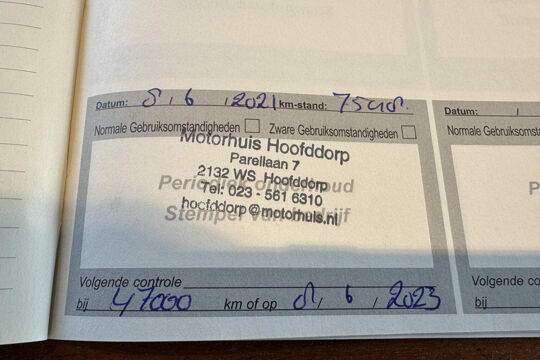 Datum: 8 / 6 / 2021 km-stand: Datum: /
Normale Gebruiksomstandigheden Zware Gebruiksomstandigheden Normale Gebruiksomst
Motorhuis Hoofddorp
Parellaan 7
2132 WS Hoofddorp
Periodiek onderhoud P
Tel: 023 - 561 6310
hoofddorp@motorhuis.nl
Stempel van bedrijf
Volgende controle Volgende co
bij 47000 km of op 8 / 6 / 2023 bij